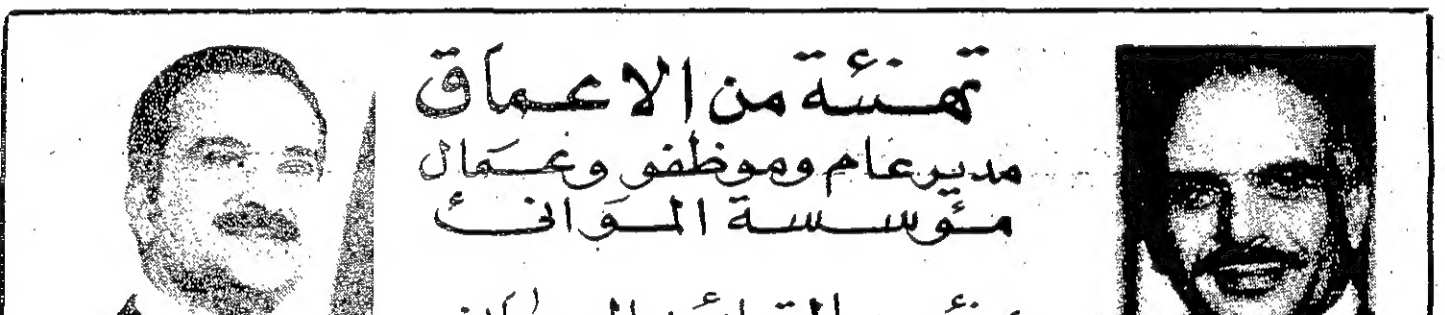 تهنئة من الاعماق
مدير عام وموظفو وعمال
مؤسسة الموانئ